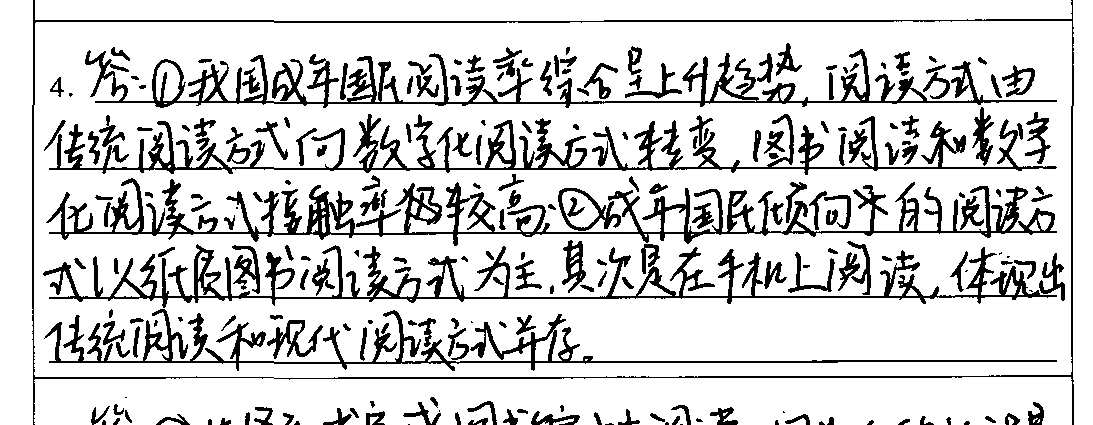 4. 答:①我国成年国民阅读率综合呈上升趋势,阅读方式由
传统阅读方式向数字化阅读方式转变,图书阅读和数字
化阅读方式接触率较高;②成年国民倾向于的阅读方
式以纸质图书阅读方式为主,其次是在手机上阅读,体现出
传统阅读和现代阅读方式并存。
答